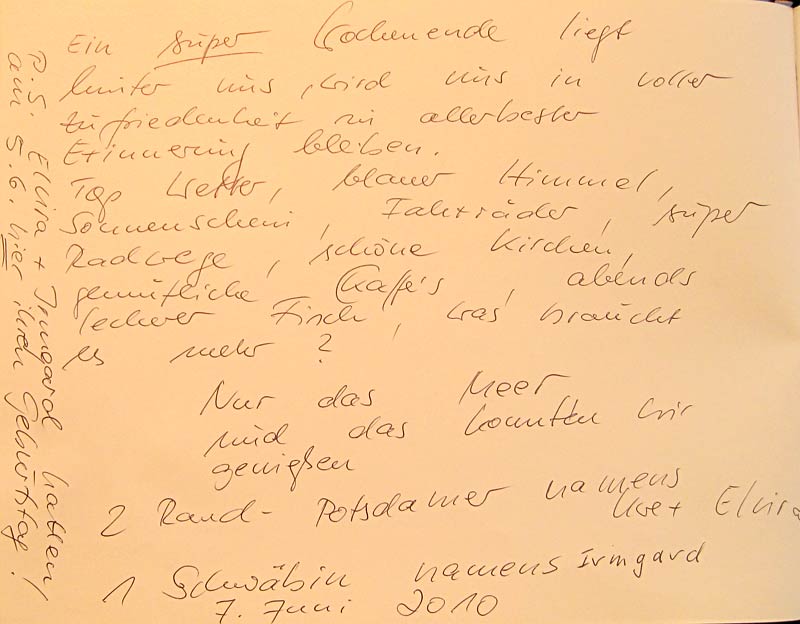 Ein super Wochenende liegt
hinter uns, wird uns in voller
Zufriedenheit in allerbester
Erinnerung bleiben.
Top Wetter, blauer Himmel,
Sonnenschein, Fahrräder, super
Radwege, schöne Kirchen,
gemütliche Kaffe's, abends
leckerer Fisch, was braucht
es mehr?
Nur das Meer
und das konnten wir
genießen
2 Rand-Potsdamer namens
Uwe + Elvira
1 Schwäbin namens Irmgard
7. Juni 2010
P.S. Elvira + Irmgard hatten
am 5.6. hier ihren Geburtstag!